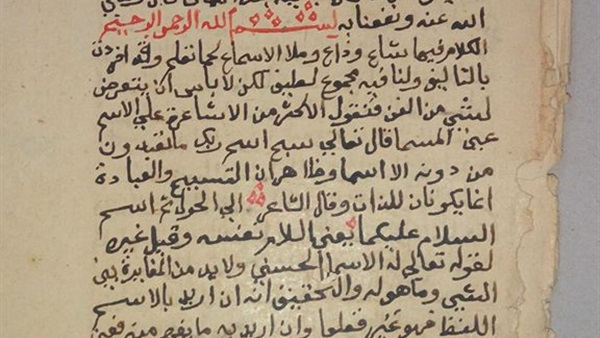 الله عنه ونفعنا به بسم الله الرحمن الرحيم
الكلام فيما شاع وذاع وملا الاسماع لحما تعلم وقد افردت
بالتاليق ولنا فيه مجموع لطيق لكن لا باس ان يتعرض
لشي من الفن فنقول الاكثر من الاشاعرة علي الاسم
عين المسما قال تعالي سبح اسم ربك ما تعبدون
من دونه الا اسما وظاهر ان التسبيح والعبادة
انما يكونان للذات وقال الشاعر الي الحول ثم اسم
السلام عليكما يعني السلام نفسه وقيل غيره
لقوله تعالي له الاسما الحسني ولا بد من المغايرة بين
الشي وما هو له والتحقيق انه ان اريد بالاسم
اللفظ فهو غير قطعا وان اريد به ما يفهم منه فعين